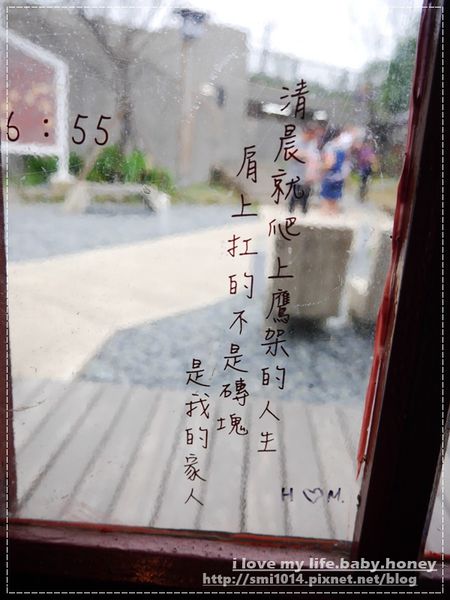 6:55
清晨就爬上鷹架的人生
肩上扛的不是磚塊
是我的家人
H♡M.
i love my life.baby.honey
http://smi1014.pixnet.net/blog